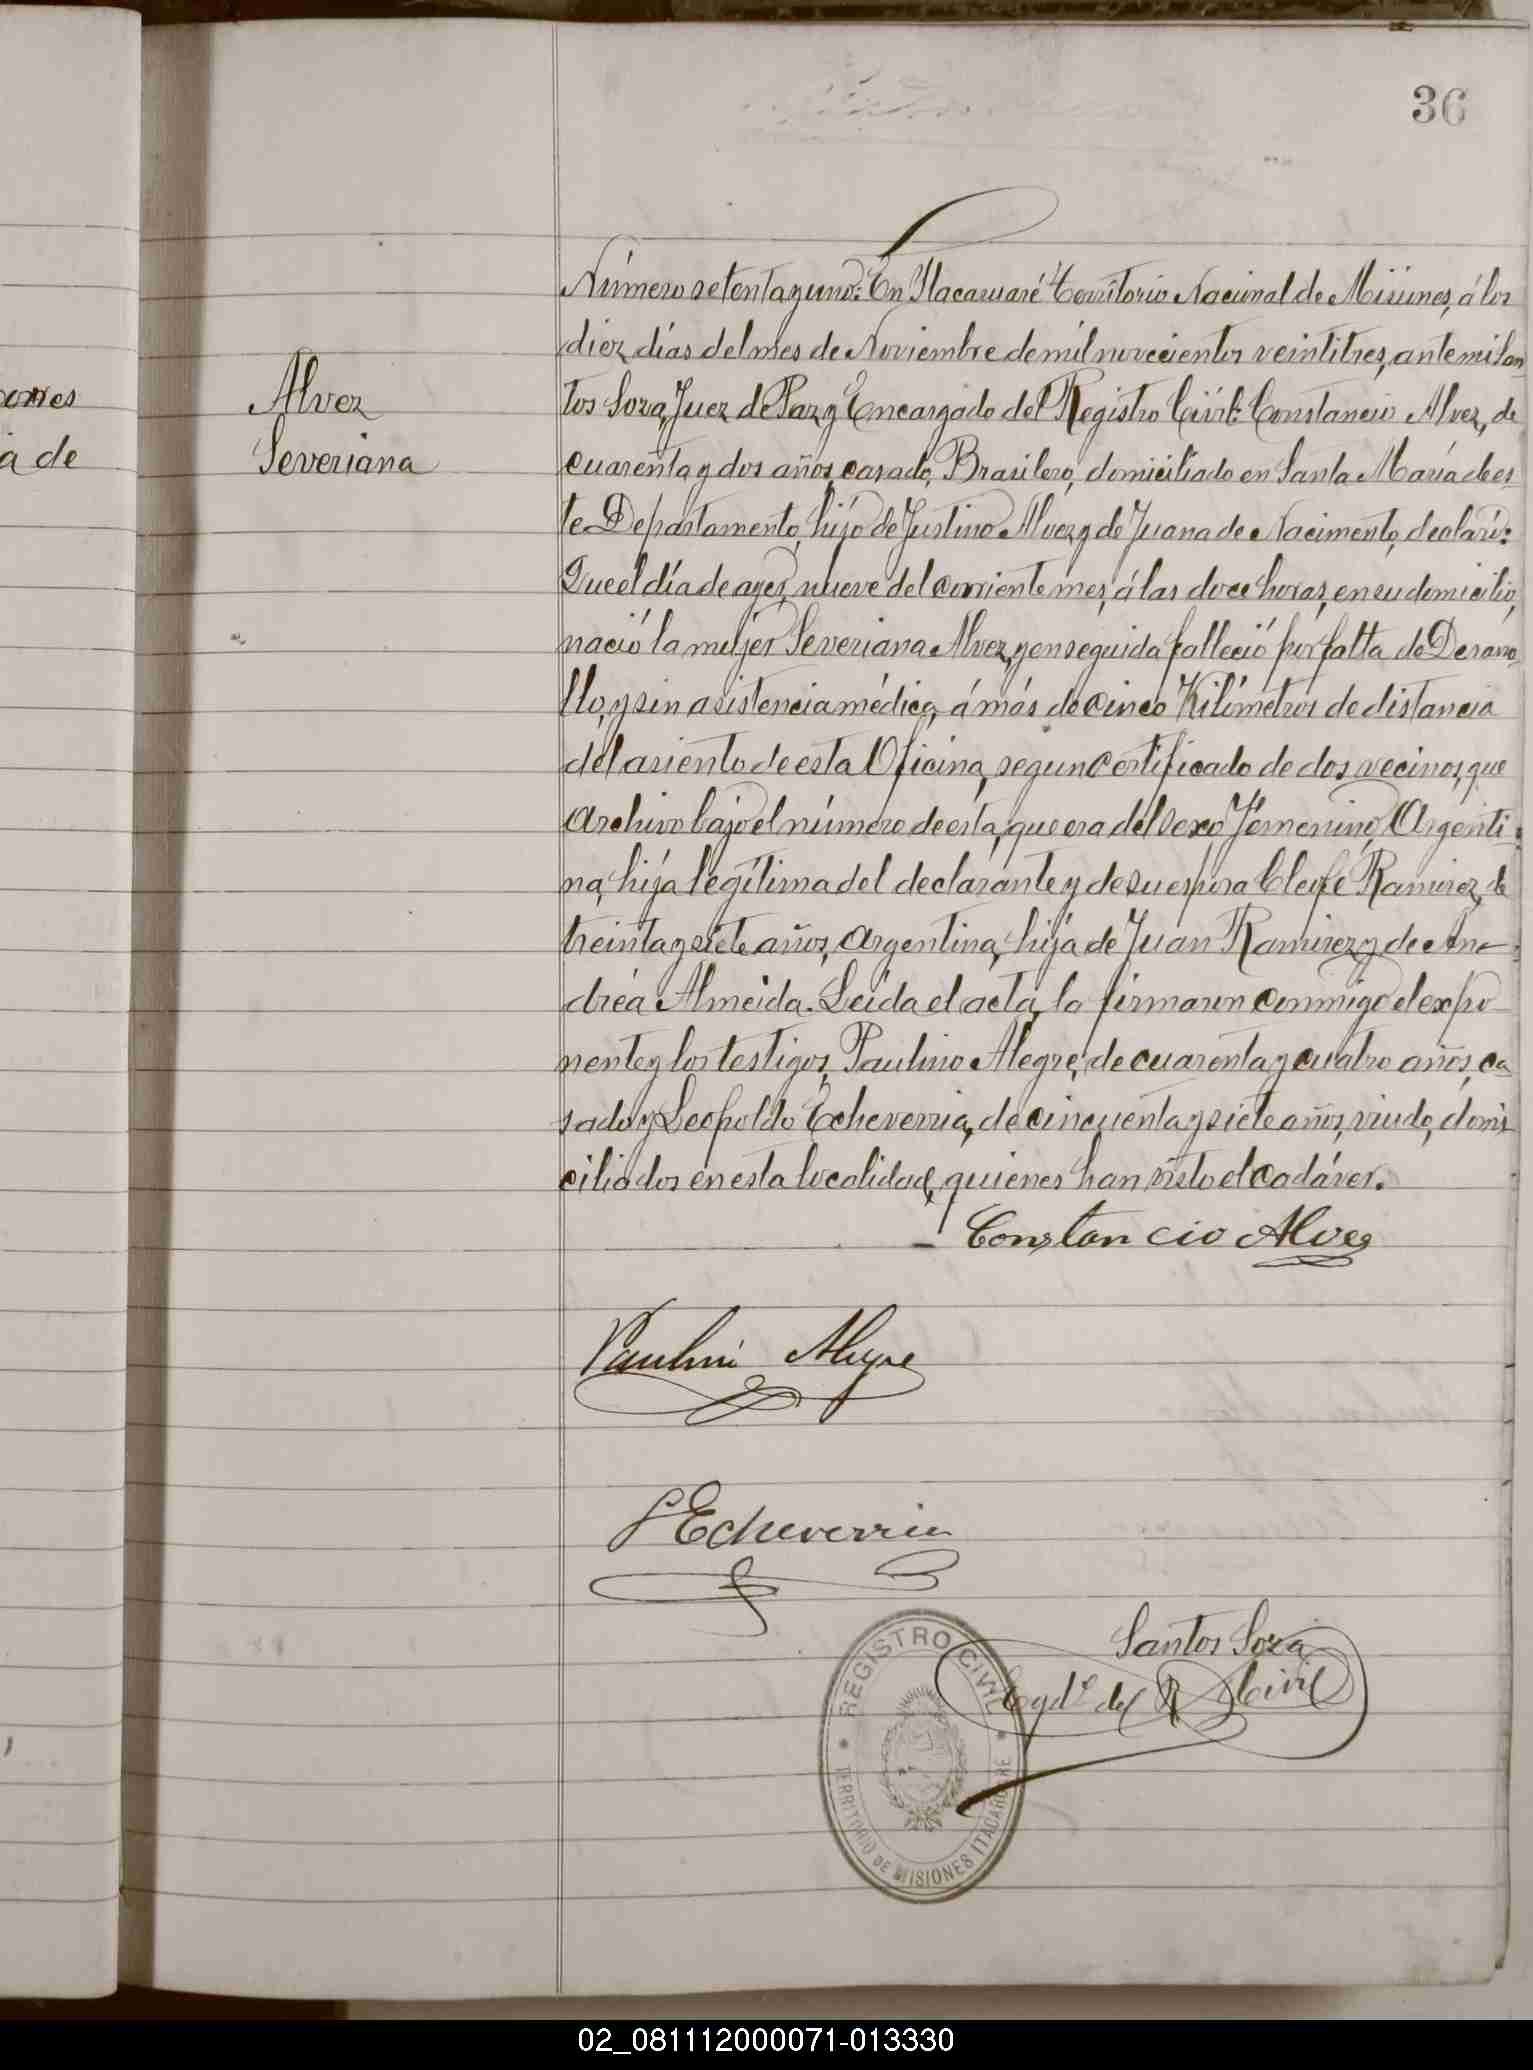 36
ones
a de
Alvez
Severiana
Número setenta y uno: En Itacaruaré Territorio Nacional de Misiones, á los
diez días del mes de Noviembre de mil novecientos veintitres, ante mi San
tos Soza, Juez de Paz y Encargado del Registro Civil: Constancio Alvez, de
cuarenta y dos años, casado, Brasilero, domiciliado en Santa María de es
te Departamento, hijo de Justino Alvez y de Juana de Nacimento, declaró:
Que el día de ayer, nueve del corriente mes, á las doce horas, en su domicilio,
nació la mujer Severiana Alvez, y enseguida falleció por falta de Desarro
llo, y sin asistencia médica, á más de cinco Kilómetros de distancia
del asiento de esta Oficina, segun certificado de dos vecinos, que
archivo bajo el número de esta, que era del sexo Femenino, Argenti
na, hija legítima del declarante y de su esposa Cleofé Ramirez, de
treinta y siete años, argentina, hija de Juan Ramirez y de An
dréa Almeida. Leida el acta, la firmaron conmigo el expo
nente y los testigos, Paulino Alegre, de cuarenta y cuatro años, ca
sado y Leopoldo Echeverria, de cincuenta y siete años, viudo, domi
ciliados en esta localidad, quienes han visto el cadáver.
Constancio Alves
Paulino Alegre
L Echeverria
Santos Soza
Egdo del R Civil
REGISTRO CIVIL
TERRITORIO DE MISIONES ITACARUARE
02_081112000071-013330